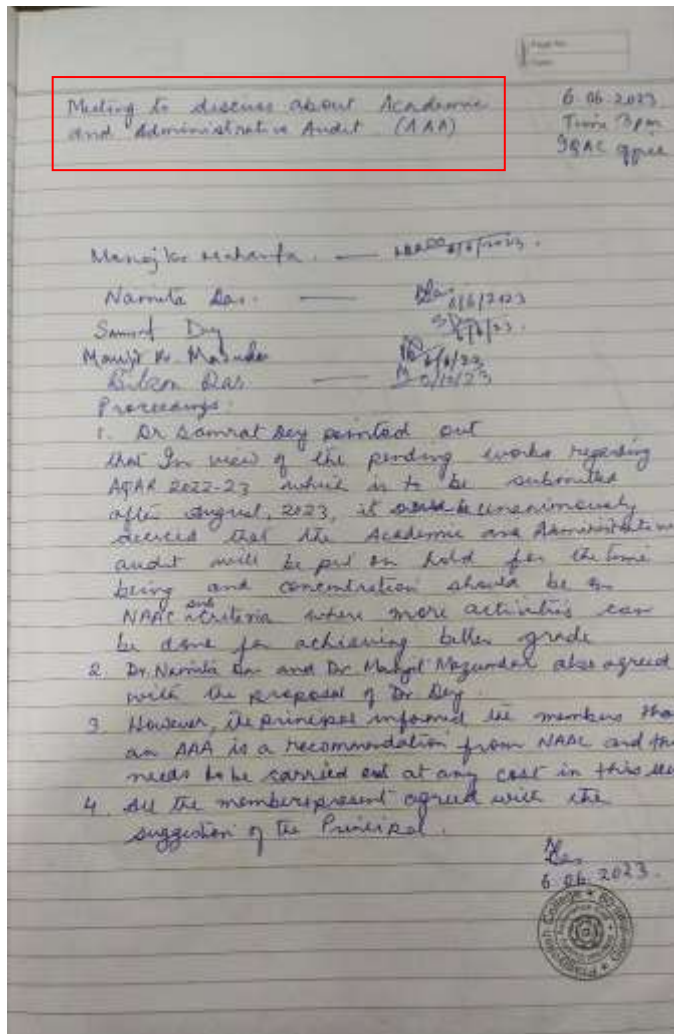 Page No.
Date
Meeting to discuss about Academic
and Administrative Audit (AAA)
6.06.2023
Time 3pm
IQAC office
Manoj Kr Mahanta. — 6/6/2023.
Namita Das. — Das 6/6/2023
Samrat Dey 6/6/23.
Manjit Kr. Mazumdar 6/6/23
Das —
Proceedings:
1. Dr Samrat Dey pointed out
that In view of the pending works regarding
AQAR 2022-23 which is to be submitted
after August, 2023, it unanimously
decided that the Academic and Administrative
audit will be put on hold for the time
being and concentration should be on
NAAC sub criteria where more activities can
be done for achieving better grade
2. Dr. Namita Das and Dr. Manjit Mazumdar also agreed
with the proposal of Dr Dey.
3. However, the principal informed the members tha
an AAA is a recommendation from NAAC and th
needs to be carried out at any cost in this
4. All the members present agreed with the
suggestion of the Principal.
Das
6.06.2023.
College